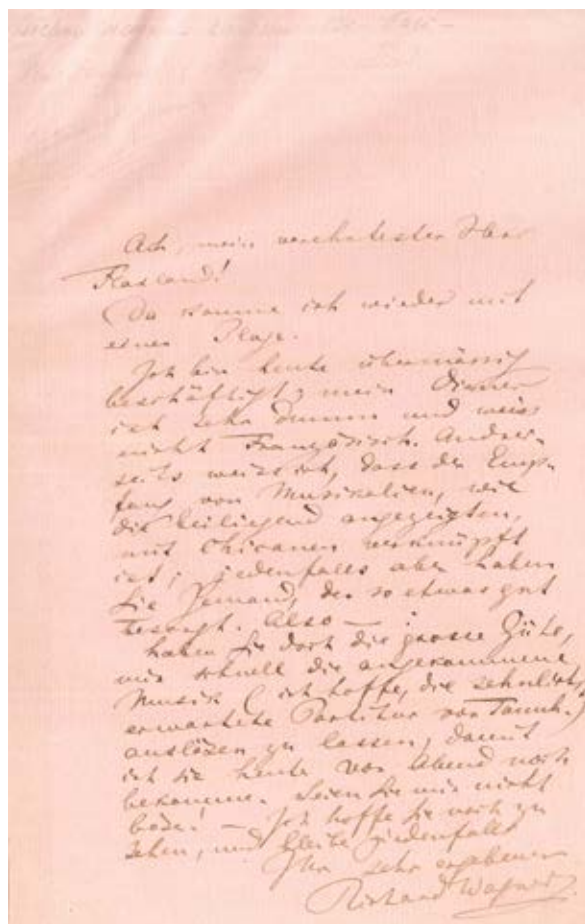 Ach, mein verehrtester Herr
Flaxland!
Da komme ich wieder mit
einer Plage.
Ich bin heute übermässig
beschäftigt; mein Diener
ist sehr dumm und weiss
nicht Französisch. Andrer-
seits weiss ich, dass der Emp-
fang von Musikalien, wie
die beiliegend angezeigten,
mit Chicanen verknüpft
ist; jedenfalls aber haben
Sie Jemand, der so etwas gut
besorgt. Also —
haben Sie doch die grosse Güte,
mir schnell die angekommene
Musik (ich hoffe, die sehnlichst
erwartete Partitur von Tannh.)
auslösen zu lassen, damit
ich sie heute vor Abend noch
bekomme. Seien Sie mir nicht
böse! — Ich hoffe Sie noch zu
sehen, und bleibe jedenfalls
Ihr sehr ergebener
Richard Wagner